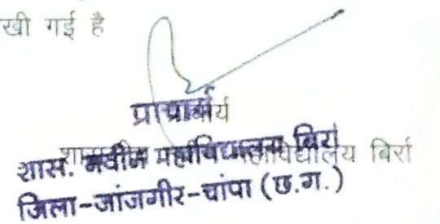 खी गई है
प्राचार्य
शास. नवीन महाविद्यालय बिर्रा
जिला-जांजगीर-चांपा (छ.ग.)